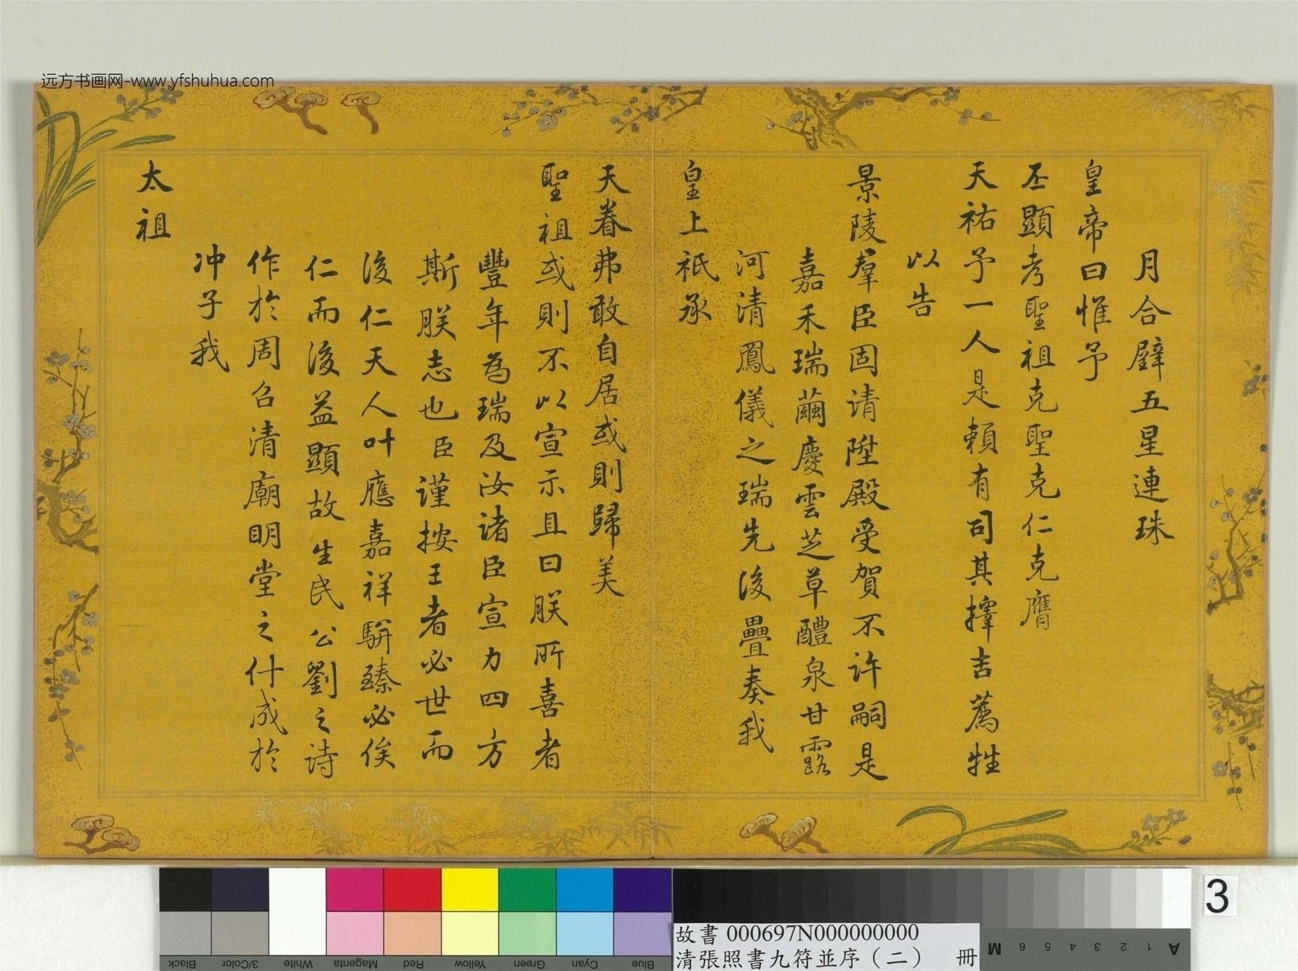 远方书画网-www.yfshuhua.com
月合璧五星連珠
皇帝曰惟予
丕顯考聖祖克聖克仁克膺
天祐予一人是賴有司其擇吉薦牲
以告
景陵羣臣固請陞殿受賀不許嗣是
嘉禾瑞繭慶雲芝草醴泉甘露
河清鳳儀之瑞先後疊奏我
皇上祇承
天眷弗敢自居或則歸美
聖祖或則不以宣示且曰朕所喜者
豐年為瑞及汝諸臣宣力四方
斯朕志也臣謹按王者必世而
後仁天人叶應嘉祥駢臻必俟
仁而後益顯故生民公劉之詩
作於周召清廟明堂之什成於
冲子我
太祖
3
故書 000697N000000000
清張照書九符並序（二） 冊
Black
3/Color
White
Magenta
Red
Yellow
Green
Cyan
Blue
M
6
5
4
3
2
1
A